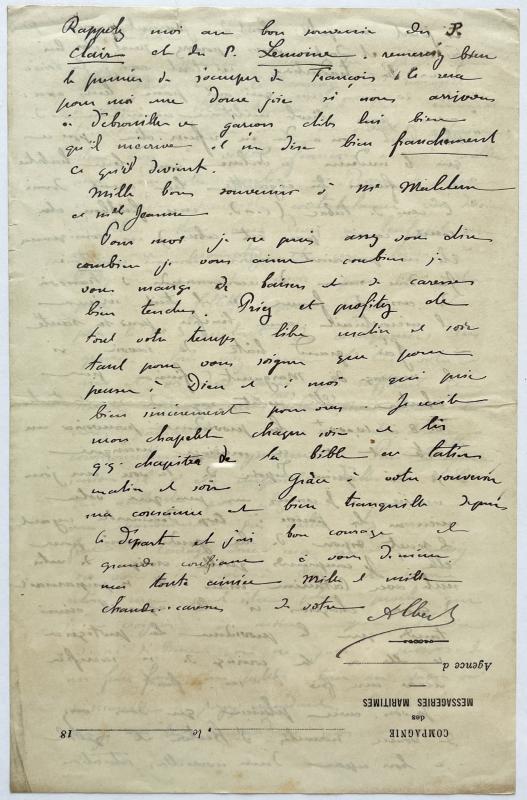 Rappelez moi au bon souvenir du P.
Clair et du P. Lemoine. remerciez bien
le premier de s'occuper de François, ce sera
pour moi une douce joie si nous arrivons
à débrouiller ce garçon dites lui bien
qu'il m'écrive et me dise bien franchement
ce qu'il devient.
Mille bons souvenirs à Me
et Melle Jeanne
Pour moi je ne puis assez vous dire
combien je vous aime combien je
vous mange de baisers et de caresses
bien tendres. Priez et profitez de
tout votre temps libre matin et soir
tant pour vous soigner que pour
penser à Dieu et à moi qui prie
bien sincèrement pour vous. Je récite
mon chapelet chaque soir et lis
qq. chapitres de la bible en latin
matin et soir. Grâce à votre souvenir
ma conscience est bien tranquille depuis
le départ et j'ai bon courage et
grande confiance à vous
mes toute aimée Mille et mille
chaudes caresses de votre Albert
Agence d
MESSAGERIES MARITIMES
des
COMPAGNIE
, le 18